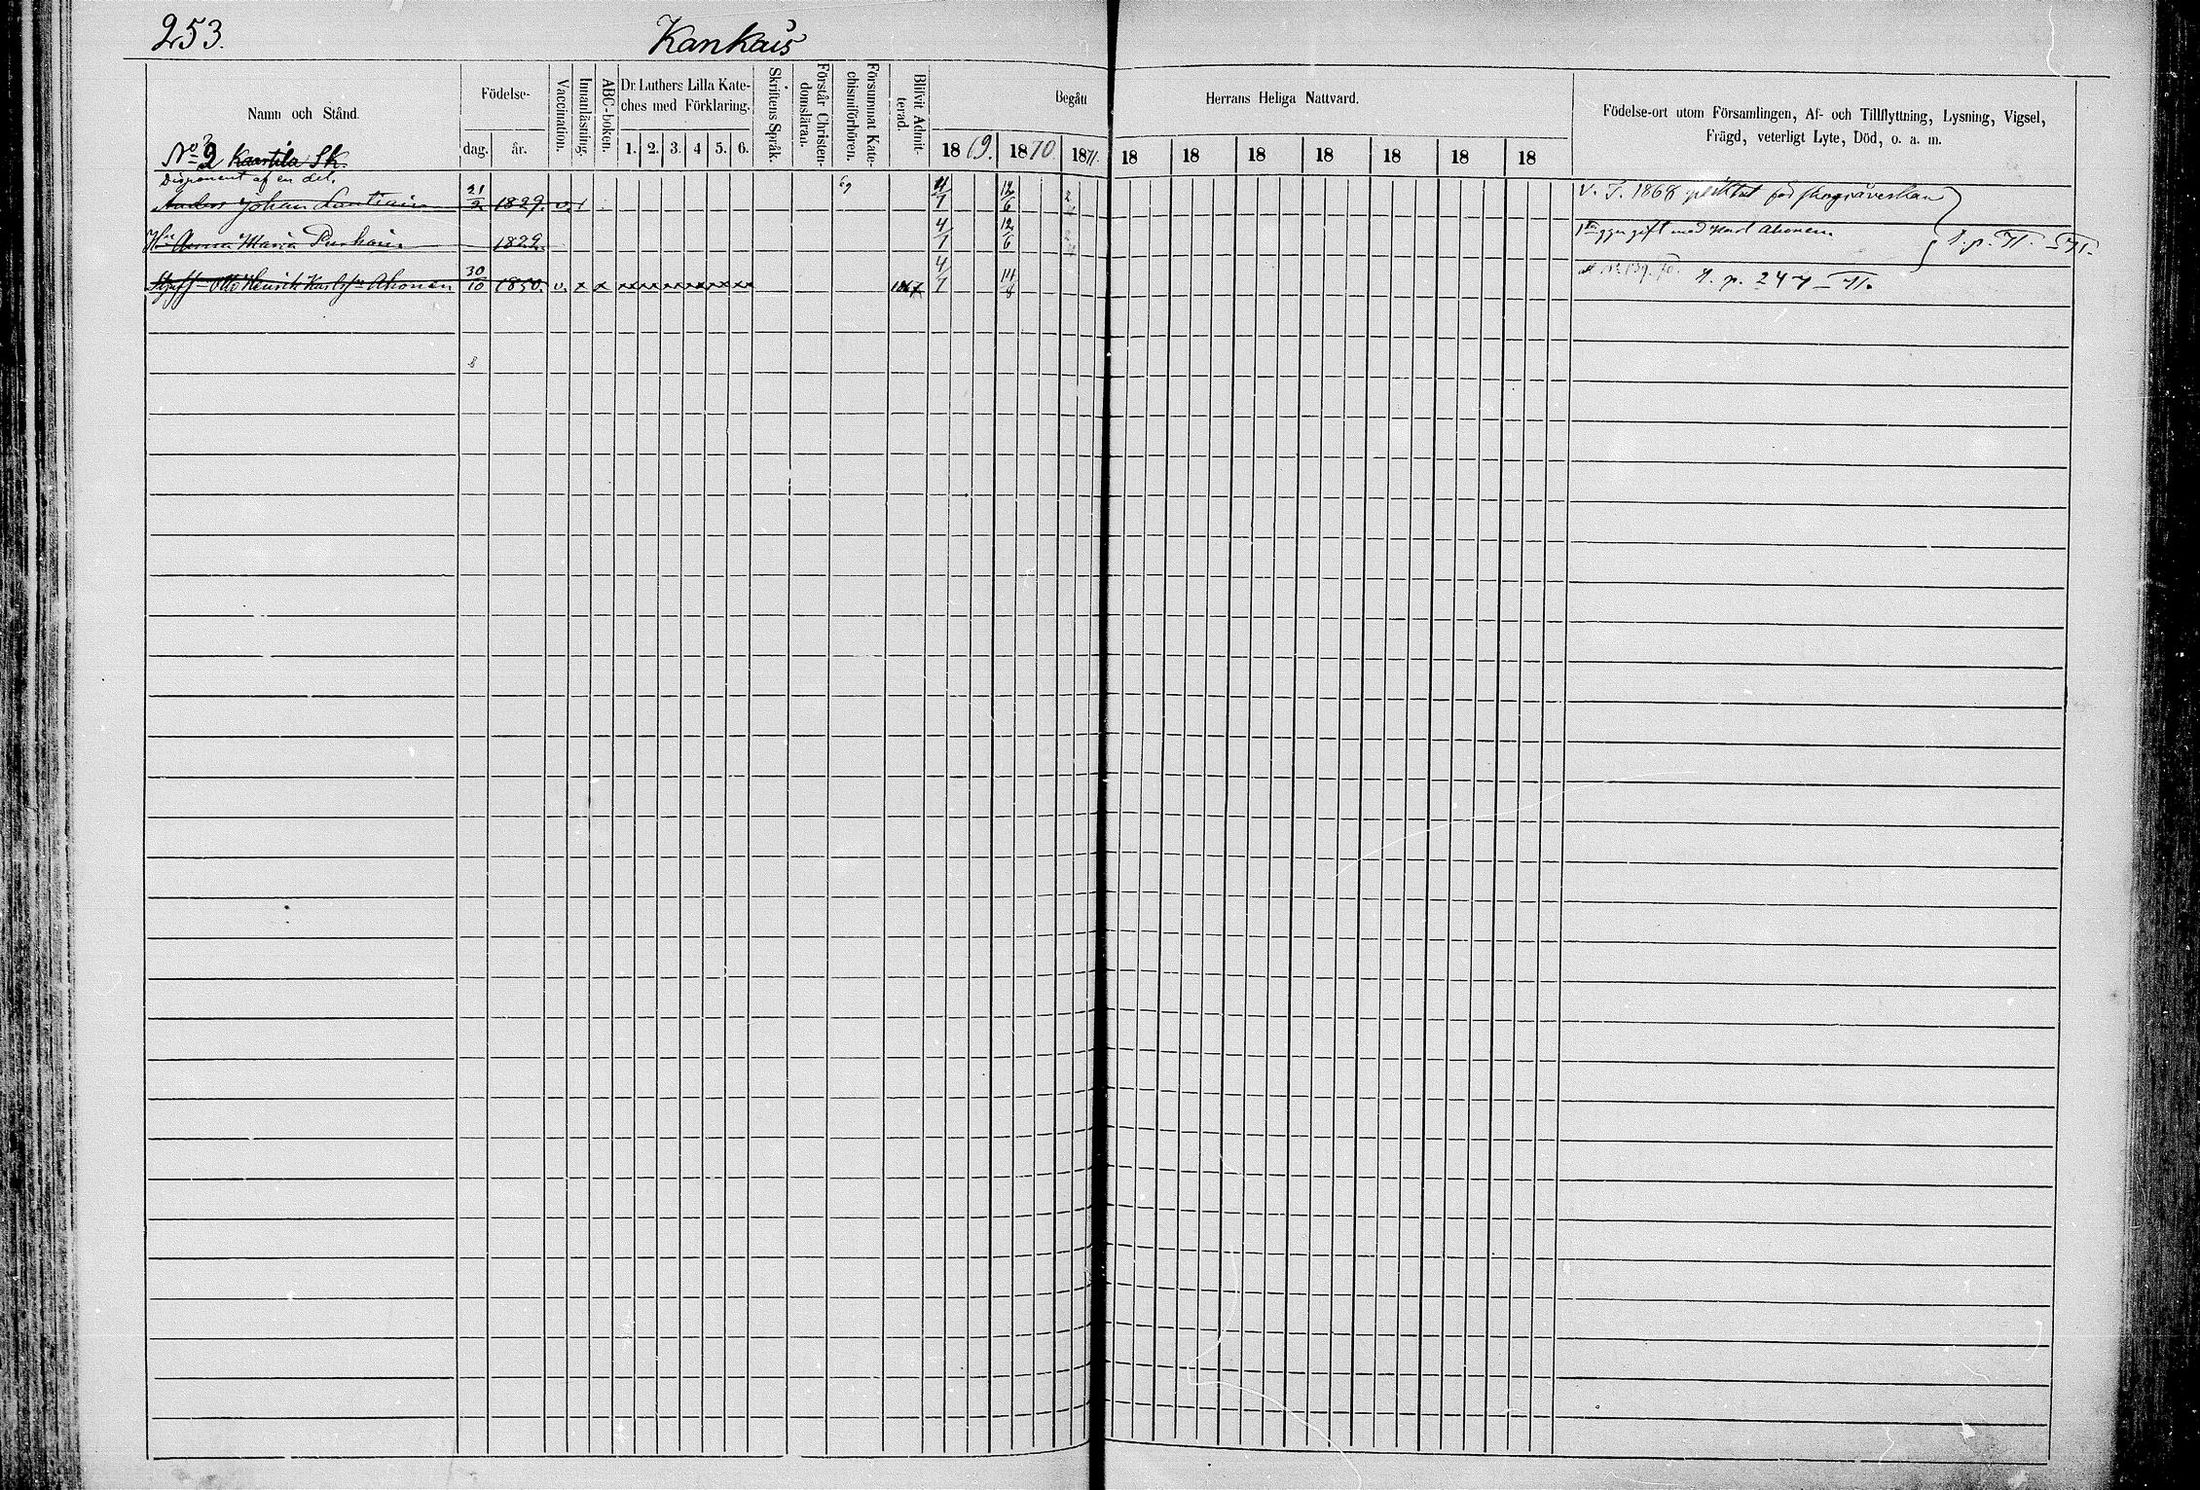 253.
Kankais
Namn och Stånd.
Födelse-
dag.
år.
Vaccination.
Innanläsning.
ABC-boken.
Dr. Luthers Lilla Kate-
ches med Förklaring.
1. 2. 3. 4 5. 6.
Skriftens Språk.
Förstår Christen-
domsläran.
Försummat Kate-
chismiförhören.
Blifvit Admit-
terad.
Begått
Herrans Heliga Nattvard.
1869. 1870 1871. 18 18 18 18 18 18 18
Födelse-ort utom Församlingen, Af- och Tillflyttning, Lysning, Vigsel,
Frägd, veterligt Lyte, Död, o. a. m.
No 2 Kaartila Sk.
Disponent af en del.
Anders Johan 21/2 1829. v. 69 4/1 12/6 v. T. 1868 pliktat för
Hu Anna Maria 1829. 4/1 12/6 gift med Karl Ahonen.
Otto Henrik Ahonen 30/10 1850. v. x x x x x x x x 1867 4/1 14/8 t. p. 247 - 71.
8